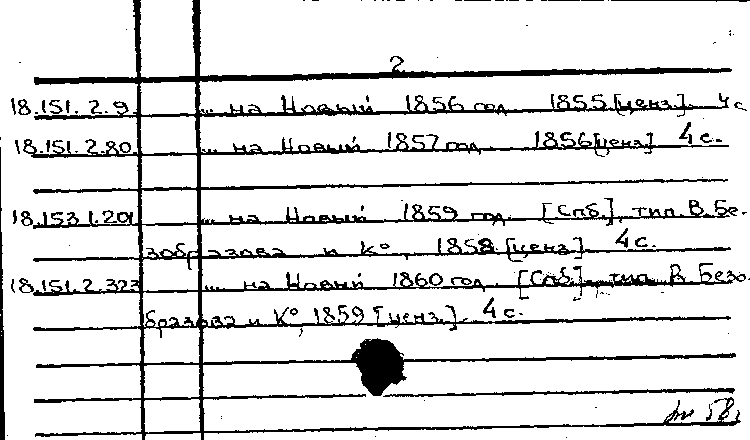 2
18.151.2.9. ... на Новый 1856 год. 1855 [ценз]. 4 с
18.151.2.80. ... на Новый 1857 год. 1856 [ценз] 4 с.
18.153.1.201 ... на Новый 1859 год. [Спб.], тип. В. Бе-
зобразова и К°, 1858 [ценз]. 4 с.
18.151.2.323 ... на Новый 1860 год. [Спб.], тип. В. Безо-
бразова и К°, 1859 [ценз.]. 4 с.